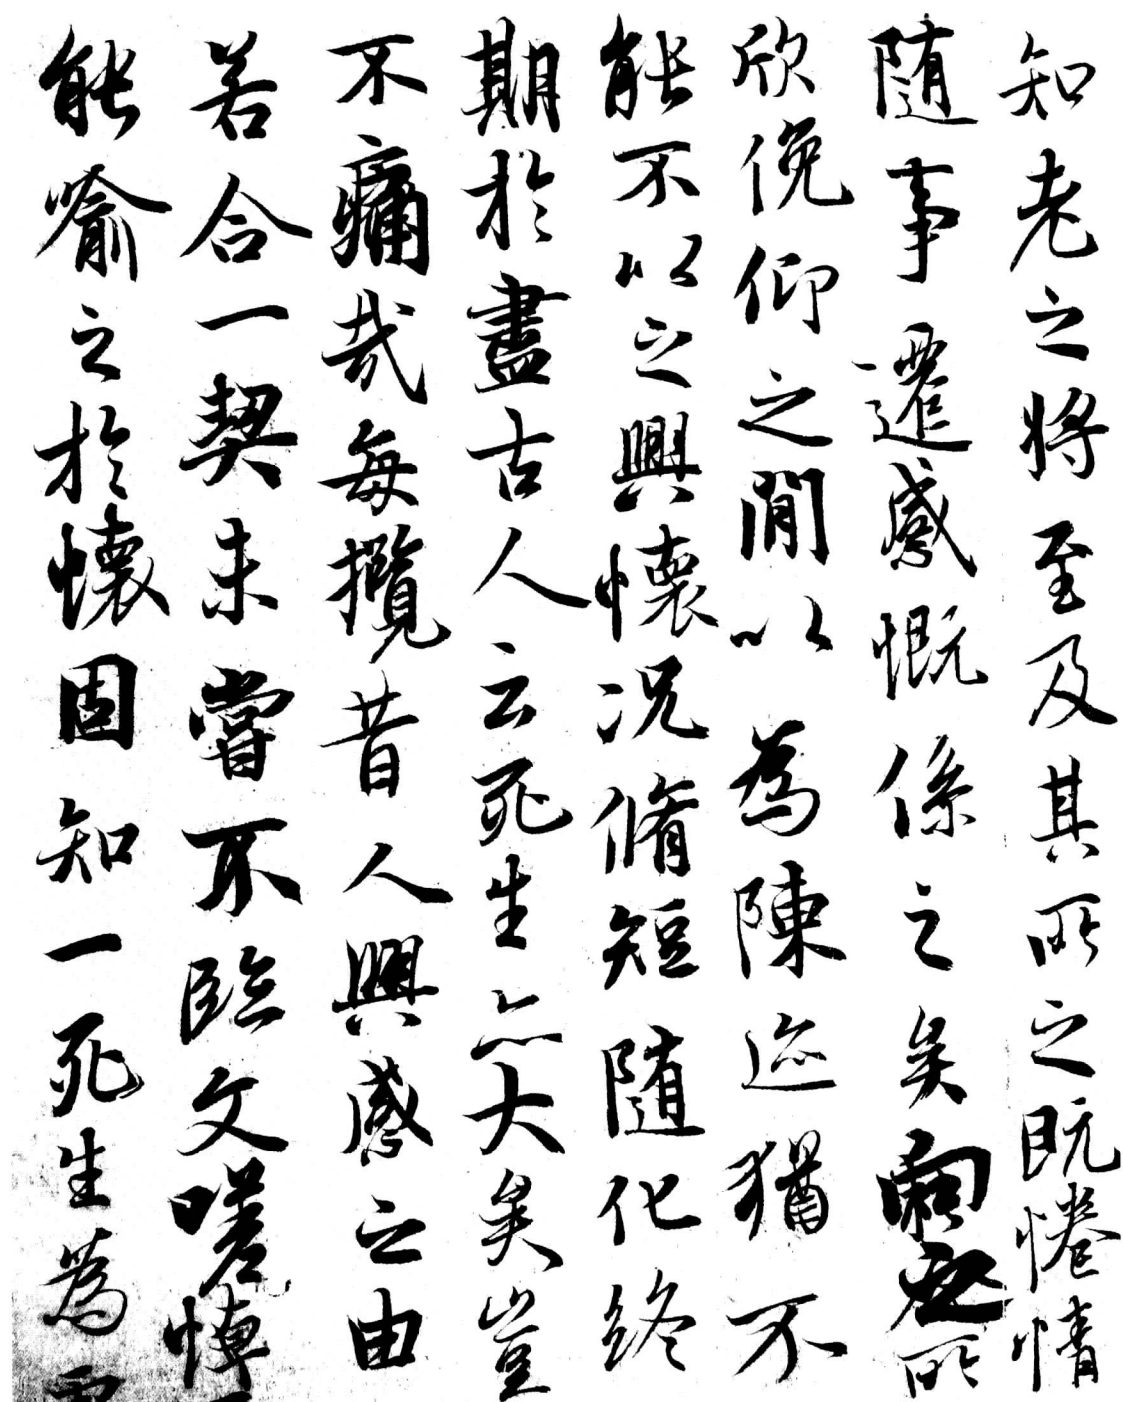 知老之将至及其所之既惓情
随事遷感慨係之矣向之所
欣俛仰之閒以為陳迹猶不
能不以之興懷况脩短随化終
期於盡古人云死生亦大矣豈
不痛哉每攬昔人興感之由
若合一契未嘗不臨文嗟悼
能喻之於懷固知一死生為